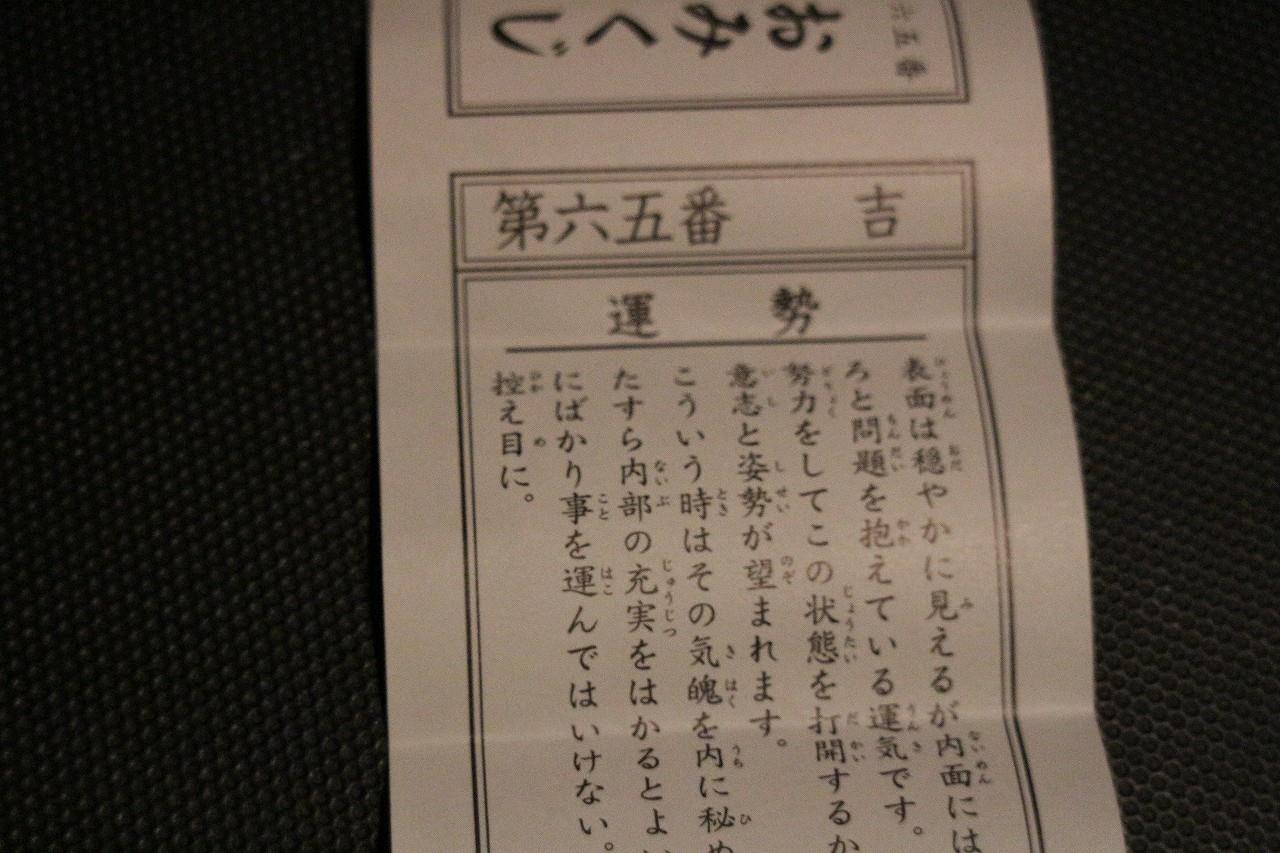 六五番
おみくじ
第六五番 吉
運勢
表面は穏やかに見えるが内面には
ろと問題を抱えている運気です。
努力をしてこの状態を打開するか
意志と姿勢が望まれます。
こういう時はその気魄を内に秘め
たすら内部の充実をはかるとよい
にばかり事を運んではいけない。
控え目に。